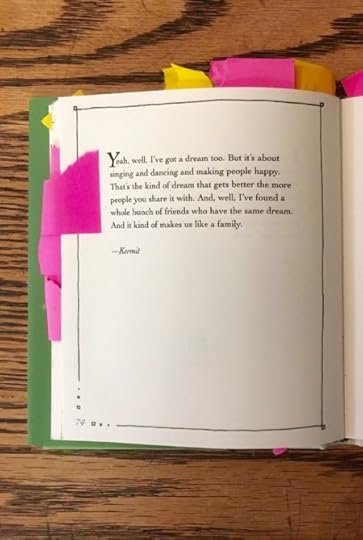 Yeah, well, I've got a dream too. But it's about
singing and dancing and making people happy.
That's the kind of dream that gets better the more
people you share it with. And, well, I've found a
whole bunch of friends who have the same dream.
And it kind of makes us like a family.
—Kermit
74